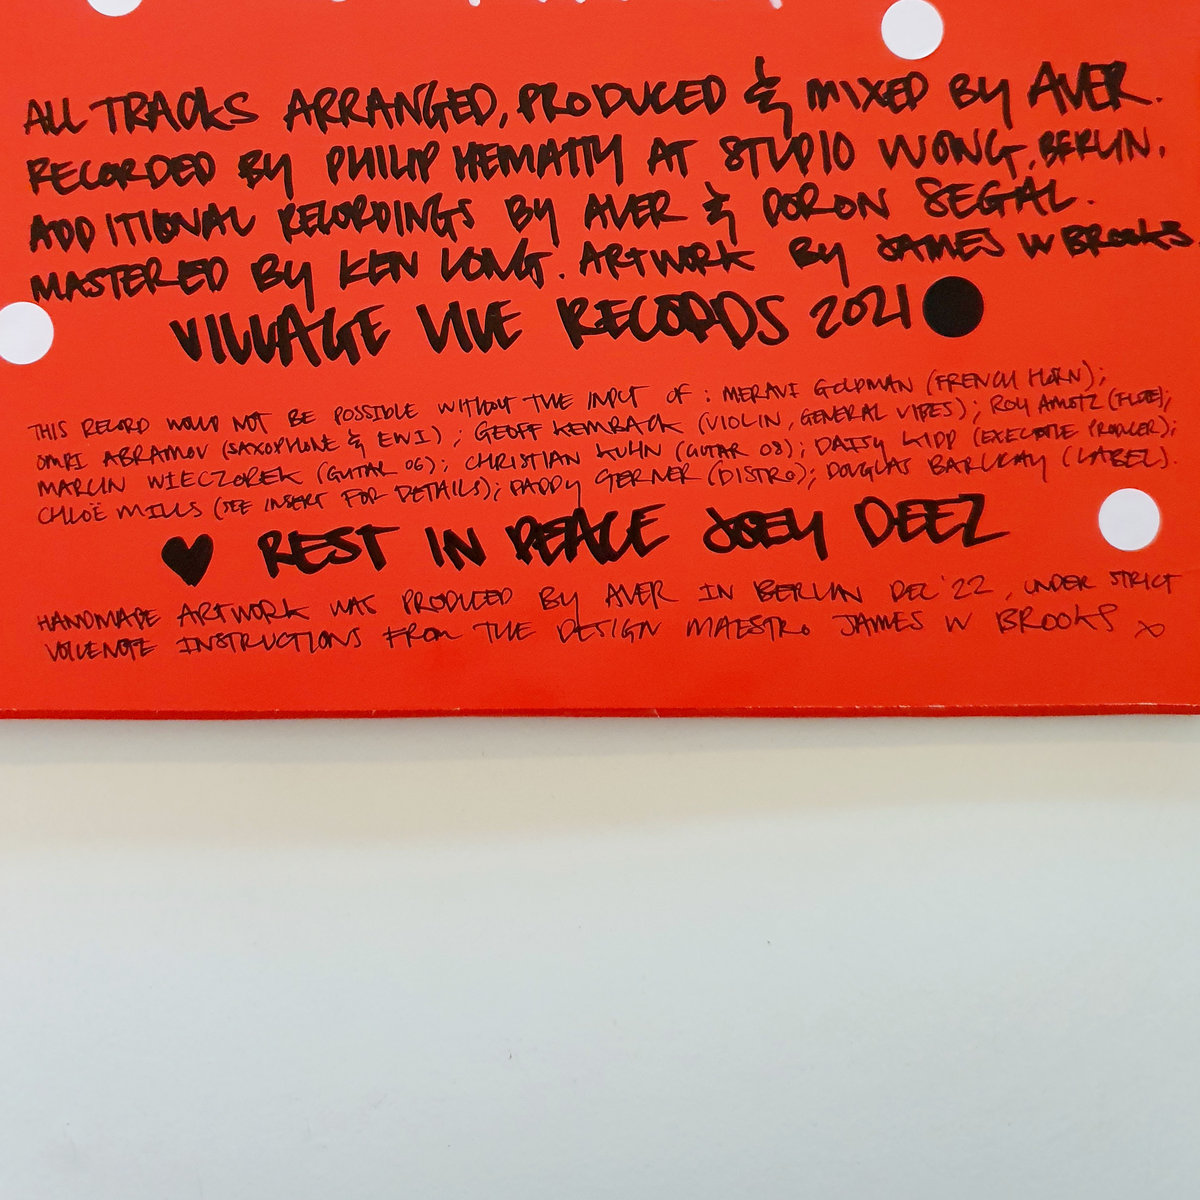 ALL TRACKS ARRANGED, PRODUCED & MIXED BY AVER.
RECORDED BY PHILIP HEMATTY AT STUDIO WONG, BERLIN.
ADDITIONAL RECORDINGS BY AVER & DORON SEGAL.
MASTERED BY KEN LONG. ARTWORK BY JAMES W BROOKS
VILLAGE LIVE RECORDS 2021
THIS RECORD WOULD NOT BE POSSIBLE WITHOUT THE INPUT OF: MERAVI GOLDMAN (FRENCH HORN);
OMRI ABRAMOV (SAXOPHONE & EWI); GEOFF KEMBACK (VIOLIN, GENERAL VIBES); ROY AMOTZ (FLUTE);
MARCIN WIECZOREK (GUITAR 06); CHRISTIAN KUHN (GUITAR 08); DAISY KIDD (EXECUTIVE PRODUCER);
CHLOË MILLS (SEE INSERT FOR DETAILS); PADDY GERNER (DISTRO); DOUGLAS BARUKAY (LABEL).
♥ REST IN PEACE JOEY DEEZ
HANDMADE ARTWORK WAS PRODUCED BY AVER IN BERLIN DEC '22, UNDER STRICT
VOICENOTE INSTRUCTIONS FROM THE DESIGN MAESTRO JAMES W BROOKS X